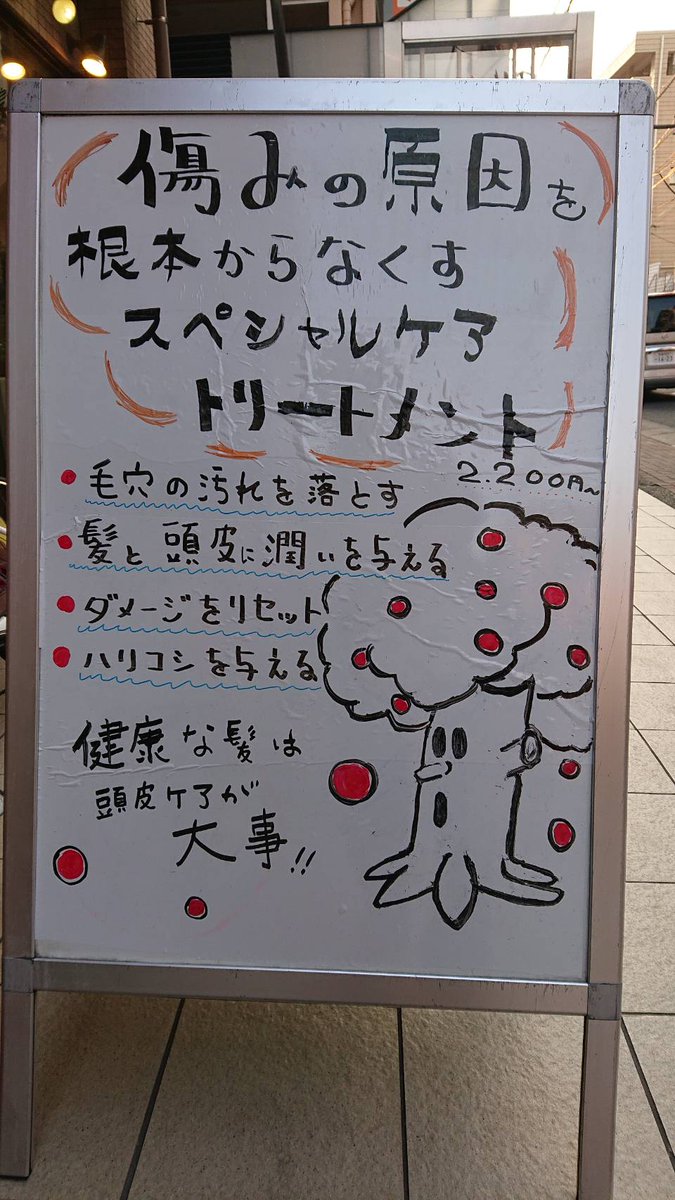 傷みの原因を
根本からなくす
スペシャルケア
トリートメント
2.200円~
毛穴の汚れを落とす
髪と頭皮に潤いを与える
ダメージをリセット
ハリコシを与える
健康な髪は
頭皮ケアが
大事!!